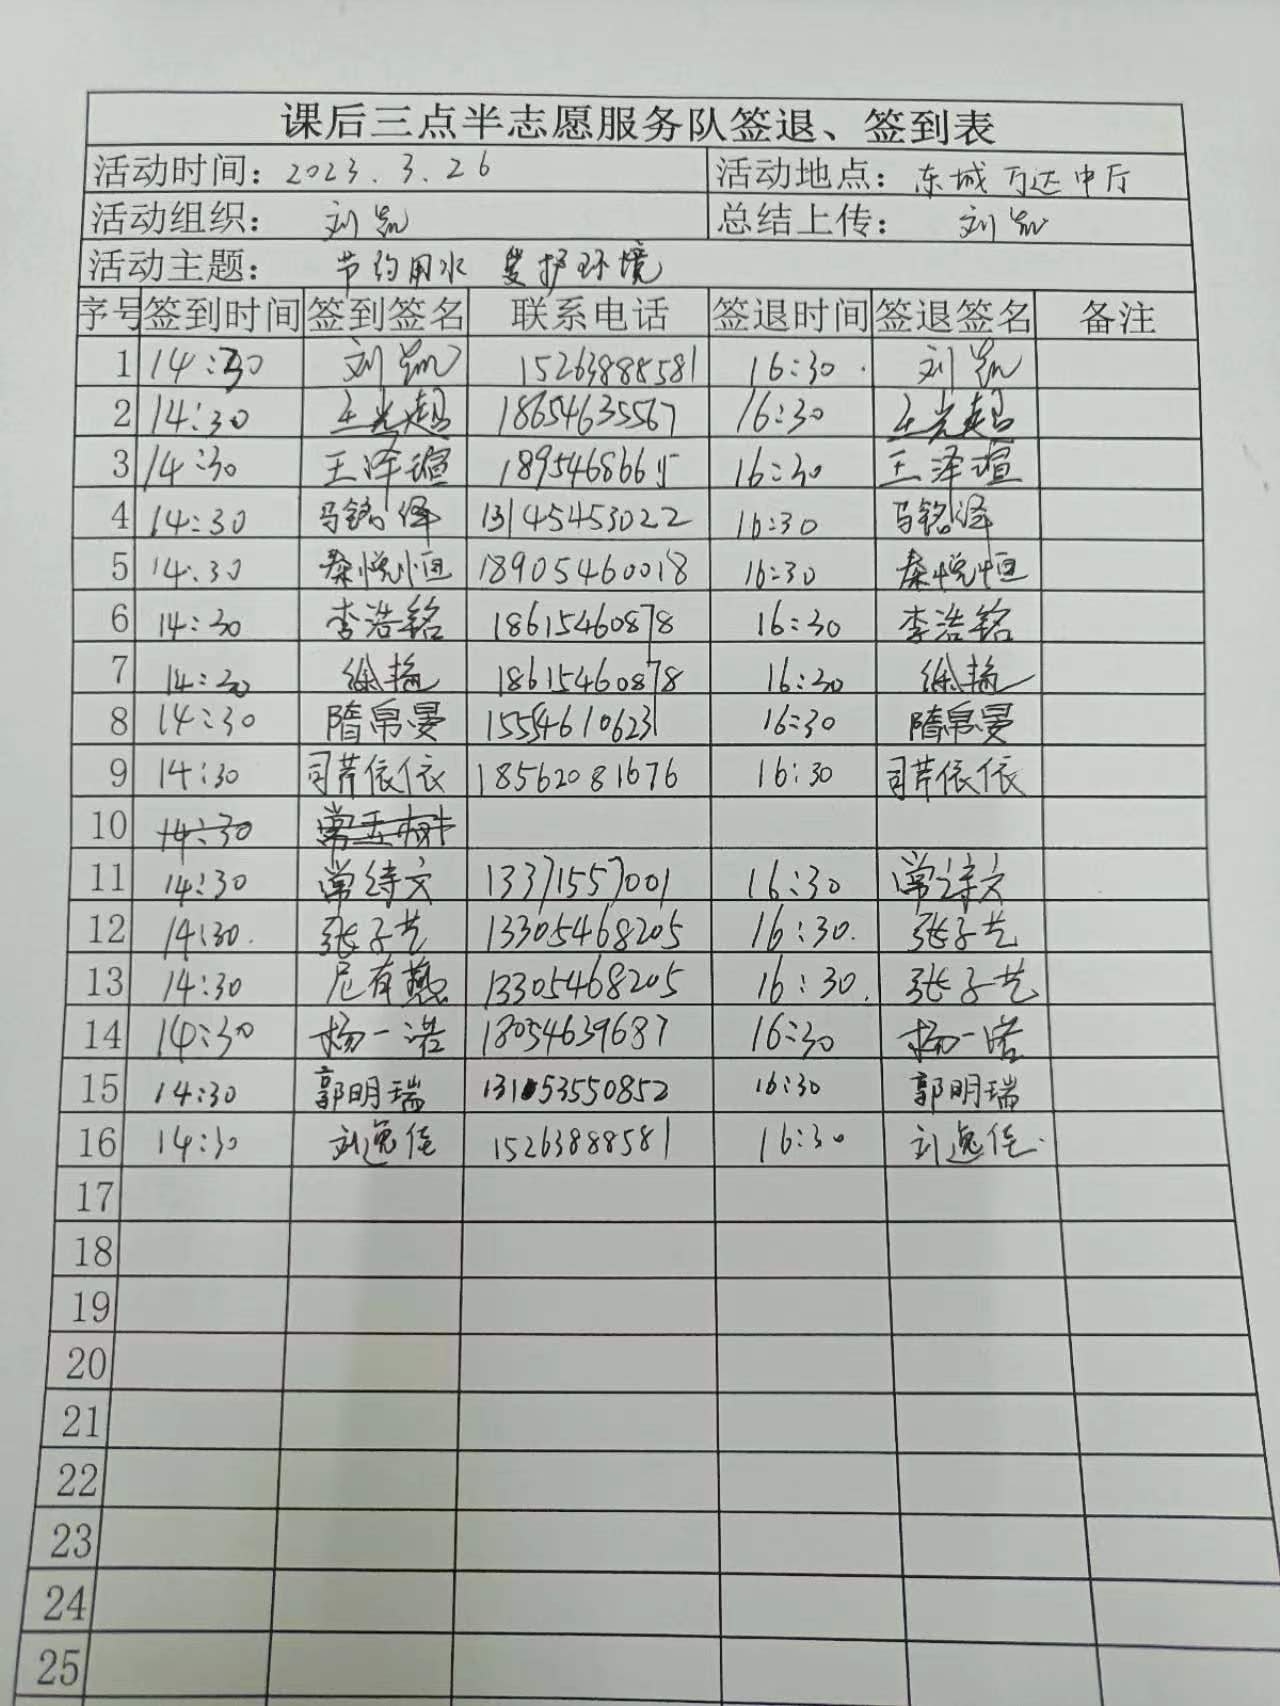 课后三点半志愿服务队签退、签到表
活动时间：2023.3.26 活动地点：东城万达中厅
活动组织：刘凯 总结上传：刘凯
活动主题：节约用水 爱护环境
序号 签到时间 签到签名 联系电话 签退时间 签退签名 备注
1 14:30 刘凯 15263888581 16:30 刘凯
2 14:30 王光超 18654635567 16:30 王光超
3 14:30 王泽瑄 16:30 王泽瑄
4 14:30 马铭泽 13145453022 16:30 马铭泽
5 14:30 秦悦恒 18905460018 16:30 秦悦恒
6 14:30 李浩铭 18615460878 16:30 李浩铭
7 14:30 徐艳 18615460878 16:30 徐艳
8 14:30 隋帛晏 15554610623 16:30 隋帛晏
9 14:30 司芹依依 18562081676 16:30 司芹依依
10 14:30
11 14:30 常诗文 13371557001 16:30 常诗文
12 14:30. 张子艺 13305468205 16:30. 张子艺
13 14:30 尼有燕 13305468205 16:30. 张子艺
14 14:30 杨一诺 18054639687 16:30 杨一诺
15 14:30 郭明瑞 13153550852 16:30 郭明瑞
16 14:30 刘逸佳 15263888581 16:30 刘逸佳.
17
18
19
20
21
22
23
24
25